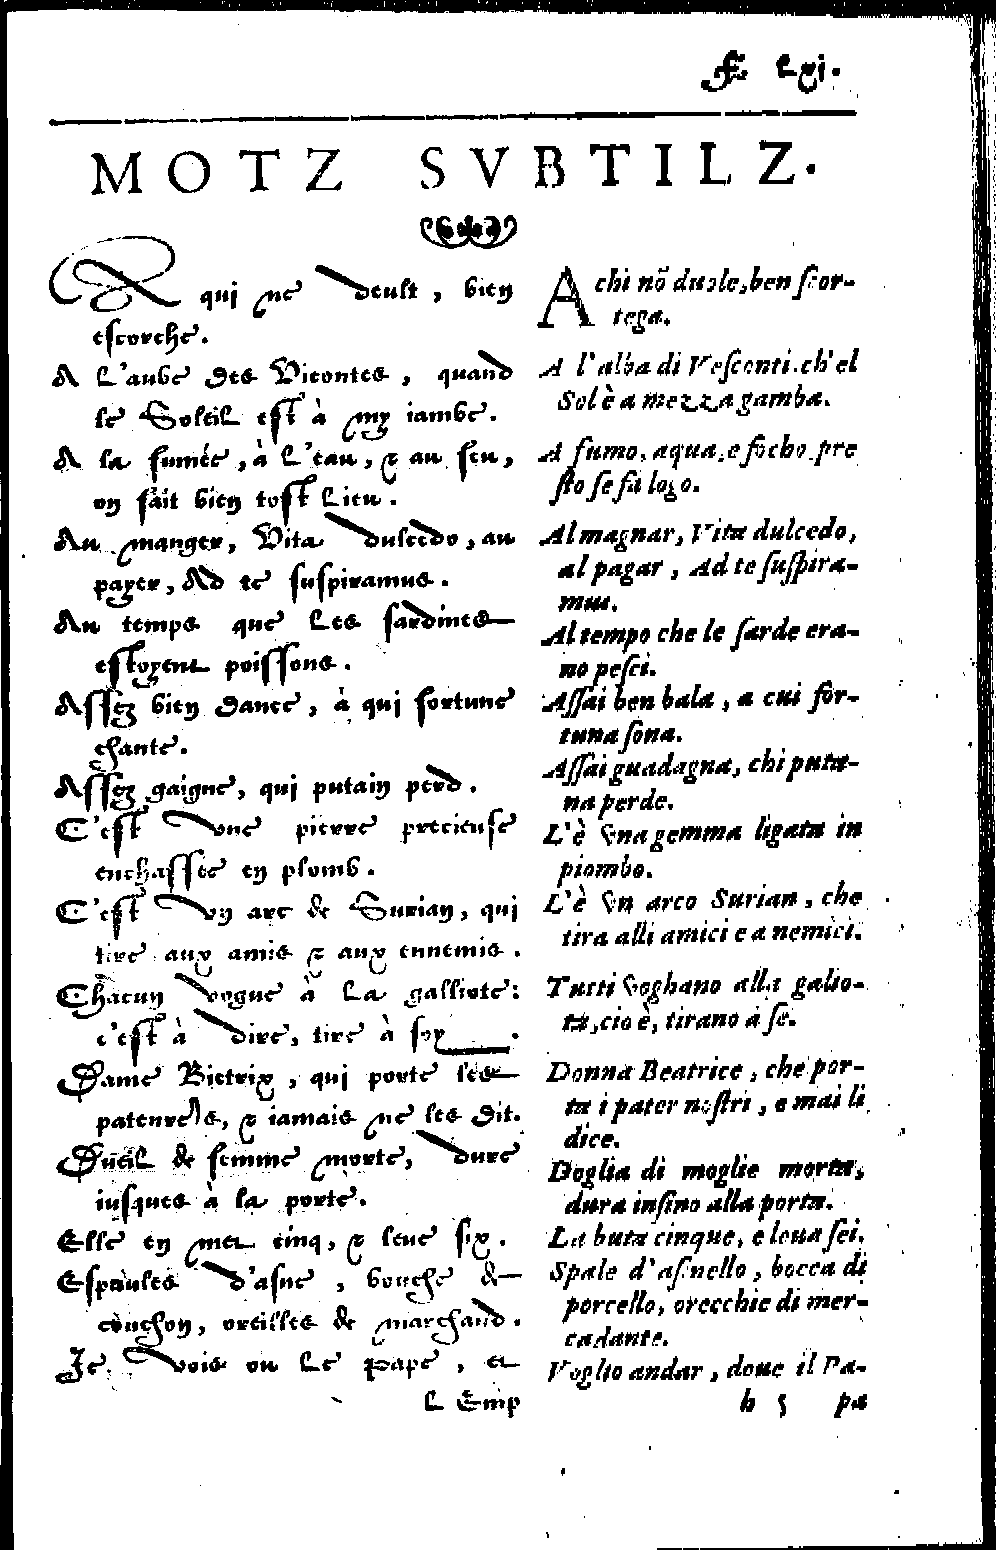 F. lxj.
MOTZ SVBTILZ.
A quj ne deult, bien
escorche.
A l'aube des Vicontes, quand
le Soleil est à my iambe.
A la fumée, à l'eau, & au feu,
on fait bien tost lieu.
Au manger, Vita dulcedo, au
payer, Ad te suspiramus.
Au temps que les sardines
estoyent poissons.
Assez bien dance, à quj fortune
chante.
Assez gaigne, quj putain perd.
C'est vne pierre precieuse
enchassée en plomb.
C'est vn arc de Surian, quj
tire aux amis & aux ennemis.
Chacun vogue à la galliote:
c'est à dire, tire à soy.
Dame Bietrix, quj porte les
patenres, & iamais ne les dit.
Dueil de femme morte, dure
iusques à la porte.
Elle en met cinq, & leue six.
Espaules d'asne, bouche de
cochon, oreilles de marchand.
Je vois ou le Pape, et
l Emp
A chi nõ duole, ben scor-
tega.
A l'alba di Vesconti, ch'el
Sol è a mezza gamba.
A fumo, aqua, e focho pre
sto se fà logo.
Al magnar, Vita dulcedo,
al pagar, Ad te suspira-
mus.
Al tempo che le sarde era-
no pesci.
Assai ben bala, a cui for-
tuna sona.
Assai guadagna, chi puta-
na perde.
L'è vna gemma ligata in
piombo.
L'è vn arco Surian, che
tira alli amici e a nemici.
Tutti voghano alla galio-
ta, cio è, tirano à se.
Donna Beatrice, che por-
ta i pater nostri, e mai li
dice.
Doglia di moglie morta,
dura insino alla porta.
La buta cinque, e leua sei.
Spale d'asinello, bocca di
porcello, orecchie di mer-
cadante.
Voglio andar, doue il Pa-
h 5 pa